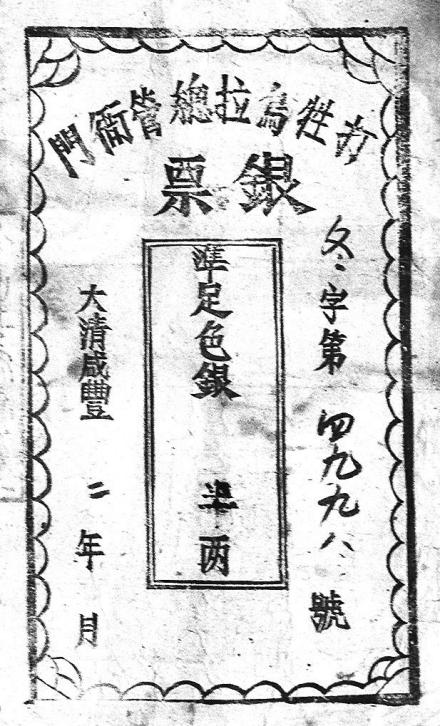 打牲烏拉總管衙門
銀票
冬字第四九九八號
準足色銀 半两
大清咸豐二年 月